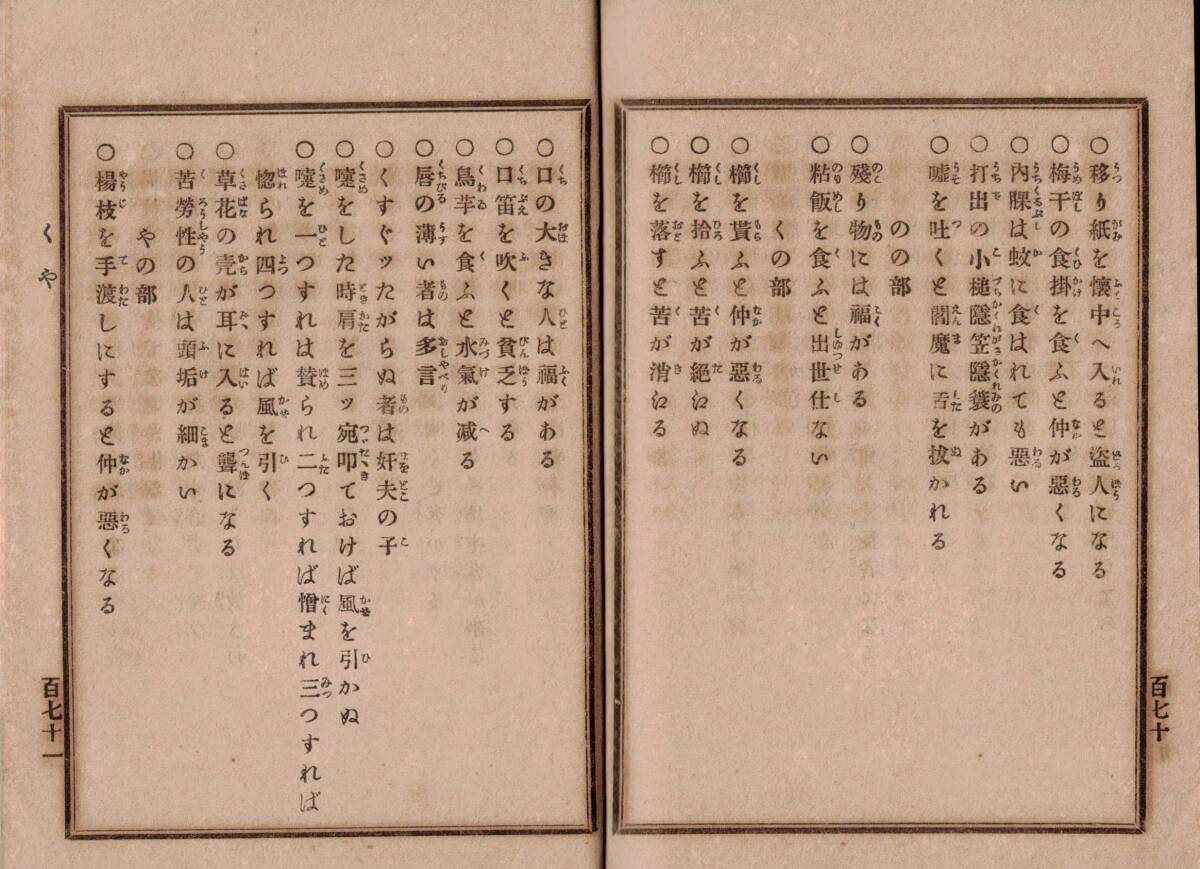 ○移り紙を懷中へ入ると盗人になる
○梅干の食掛を食ふと仲が惡くなる
○內腂は蚊に食はれても惡い
○打出の小槌隱笠隱簑がある
○嘘を吐くと閻魔に舌を拔かれる
のの部
○殘り物には福がある
○粘飯を食ふと出世仕ない
くの部
○櫛を貰ふと仲が惡くなる
○櫛を拾ふと苦が絕江ぬ
○櫛を落すと苦が消江る
百七十
○口の大きな人は福がある
○口笛を吹くと貧乏する
○烏芋を食ふと水氣が减る
○唇の薄い者は多言
○くすぐッたがらぬ者は奸夫の子
○嚏をした時肩を三ッ宛叩ておけば風を引かぬ
○嚏を一つすれは賛られ二つすれば憎まれ三つすれば
惚られ四つすれば風を引く
○草花の壳が耳に入ると聾になる
○苦勞性の人は頭垢が細かい
やの部
○楊枝を手渡しにすると仲が惡くなる
くや
百七十一